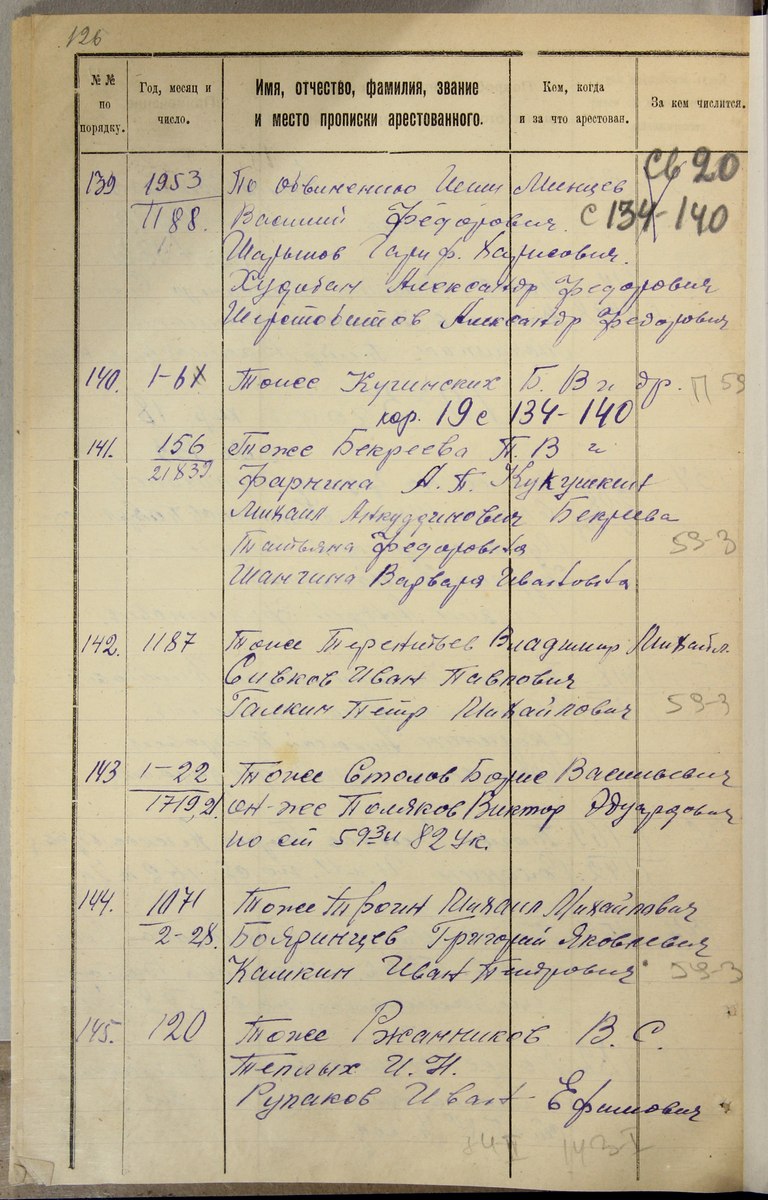 126
№№ по порядку.
Год, месяц и число.
Имя, отчество, фамилия, звание и место прописки арестованного.
Кем, когда и за что арестован.
За кем числится.
139 1953 По обвинению Мишцев Св 20
1188. Василий Федорович. с 134-140
Шарыпов Гариф Харисович.
Худобан Александр Федорович
Шерстобитов Александр Федорович
140. 1-67 Тоже Кугинских Б. В и др. П 59
кор. 19 с 134-140
141. 156 Тоже Бекреева Т. В и
21839 Фарнина А. П. Кукушкин
Михаил Анкудинович Бекреева
Татьяна Федоровна 59-3
Шангина Варвара Ивановна
142. 1187 Тоже Терентьев Владимир Михайл.
Сивков Иван Павлович
Галкин Петр Михайлович 59-3
143 1-22 Тоже Столов Борис Васильевич
1719,21. он-же Поляков Виктор Эдуардович
по ст 59-3 и 82 Ук.
144. 1071 Тоже Трогин Михаил Михайлович
2-28. Бояринцев Григорий Яковлевич
Камкин Иван Петрович 59-3
145. 120 Тоже Ржанников В. С.
Теплых И. Н.
Рупаков Иван Ефимович
84 II 143-I